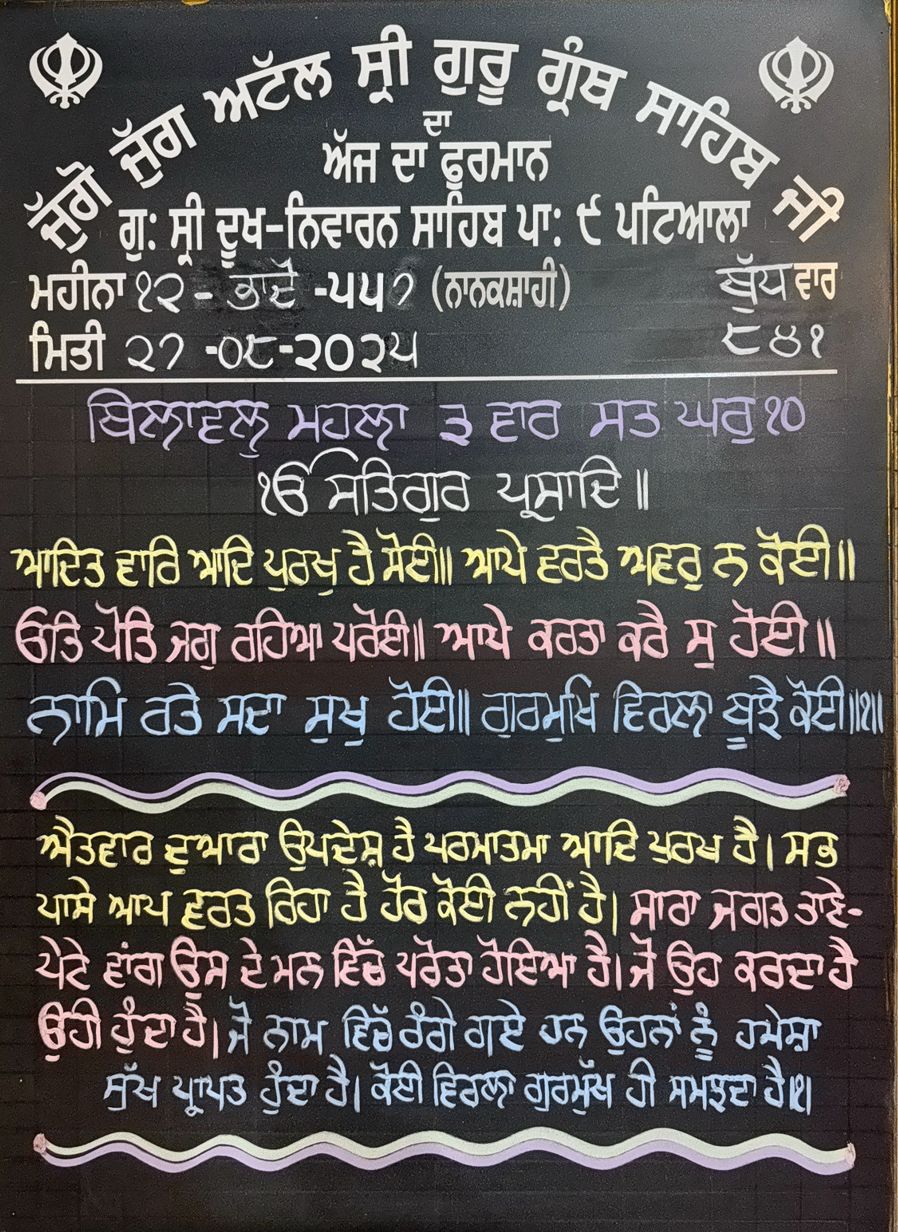 ਜੁੱਗੋ ਜੁੱਗ ਅਟੱਲ ਸ੍ਰੀ ਗੁਰੂ ਗ੍ਰੰਥ ਸਾਹਿਬ ਜੀ
ਦਾ
ਅੱਜ ਦਾ ਫੁਰਮਾਨ
ਗੁ: ਸ੍ਰੀ ਦੂਖ-ਨਿਵਾਰਨ ਸਾਹਿਬ ਪਾ: ੯ ਪਟਿਆਲਾ
ਮਹੀਨਾ ੧੨ - ਭਾਦੋਂ -੫੫੭ (ਨਾਨਕਸ਼ਾਹੀ) ਬੁੱਧ ਵਾਰ
ਮਿਤੀ ੨੭ -੦੮-੨੦੨੫ ੮੪੧
ਬਿਲਾਵਲੁ ਮਹਲਾ ੩ ਵਾਰ ਸਤ ਘਰੁ ੧੦
ੴ ਸਤਿਗੁਰ ਪ੍ਰਸਾਦਿ ॥
ਆਦਿਤ ਵਾਰਿ ਆਦਿ ਪੁਰਖੁ ਹੈ ਸੋਈ॥ ਆਪੇ ਵਰਤੈ ਅਵਰੁ ਨ ਕੋਈ॥
ਓਤਿ ਪੋਤਿ ਜਗੁ ਰਹਿਆ ਪਰੋਈ॥ ਆਪੇ ਕਰਤਾ ਕਰੈ ਸੁ ਹੋਈ॥
ਨਾਮਿ ਰਤੇ ਸਦਾ ਸੁਖੁ ਹੋਈ॥ ਗੁਰਮੁਖਿ ਵਿਰਲਾ ਬੂਝੈ ਕੋਈ॥੧॥
ਐਤਵਾਰ ਦੁਆਰਾ ਉਪਦੇਸ਼ ਹੈ ਪਰਮਾਤਮਾ ਆਦਿ ਪੁਰਖ ਹੈ। ਸਭ
ਪਾਸੇ ਆਪ ਵਰਤ ਰਿਹਾ ਹੈ ਹੋਰ ਕੋਈ ਨਹੀਂ ਹੈ। ਸਾਰਾ ਜਗਤ ਤਾਣੇ-
ਪੇਟੇ ਵਾਂਗ ਉਸ ਦੇ ਮਨ ਵਿੱਚ ਪਰੋਤਾ ਹੋਇਆ ਹੈ। ਜੋ ਉਹ ਕਰਦਾ ਹੈ
ਉਹੀ ਹੁੰਦਾ ਹੈ। ਜੋ ਨਾਮ ਵਿੱਚ ਰੰਗੇ ਗਏ ਹਨ ਉਹਨਾਂ ਨੂੰ ਹਮੇਸ਼ਾ
ਸੁੱਖ ਪ੍ਰਾਪਤ ਹੁੰਦਾ ਹੈ। ਕੋਈ ਵਿਰਲਾ ਗੁਰਮੁੱਖ ਹੀ ਸਮਝਦਾ ਹੈ।੧।